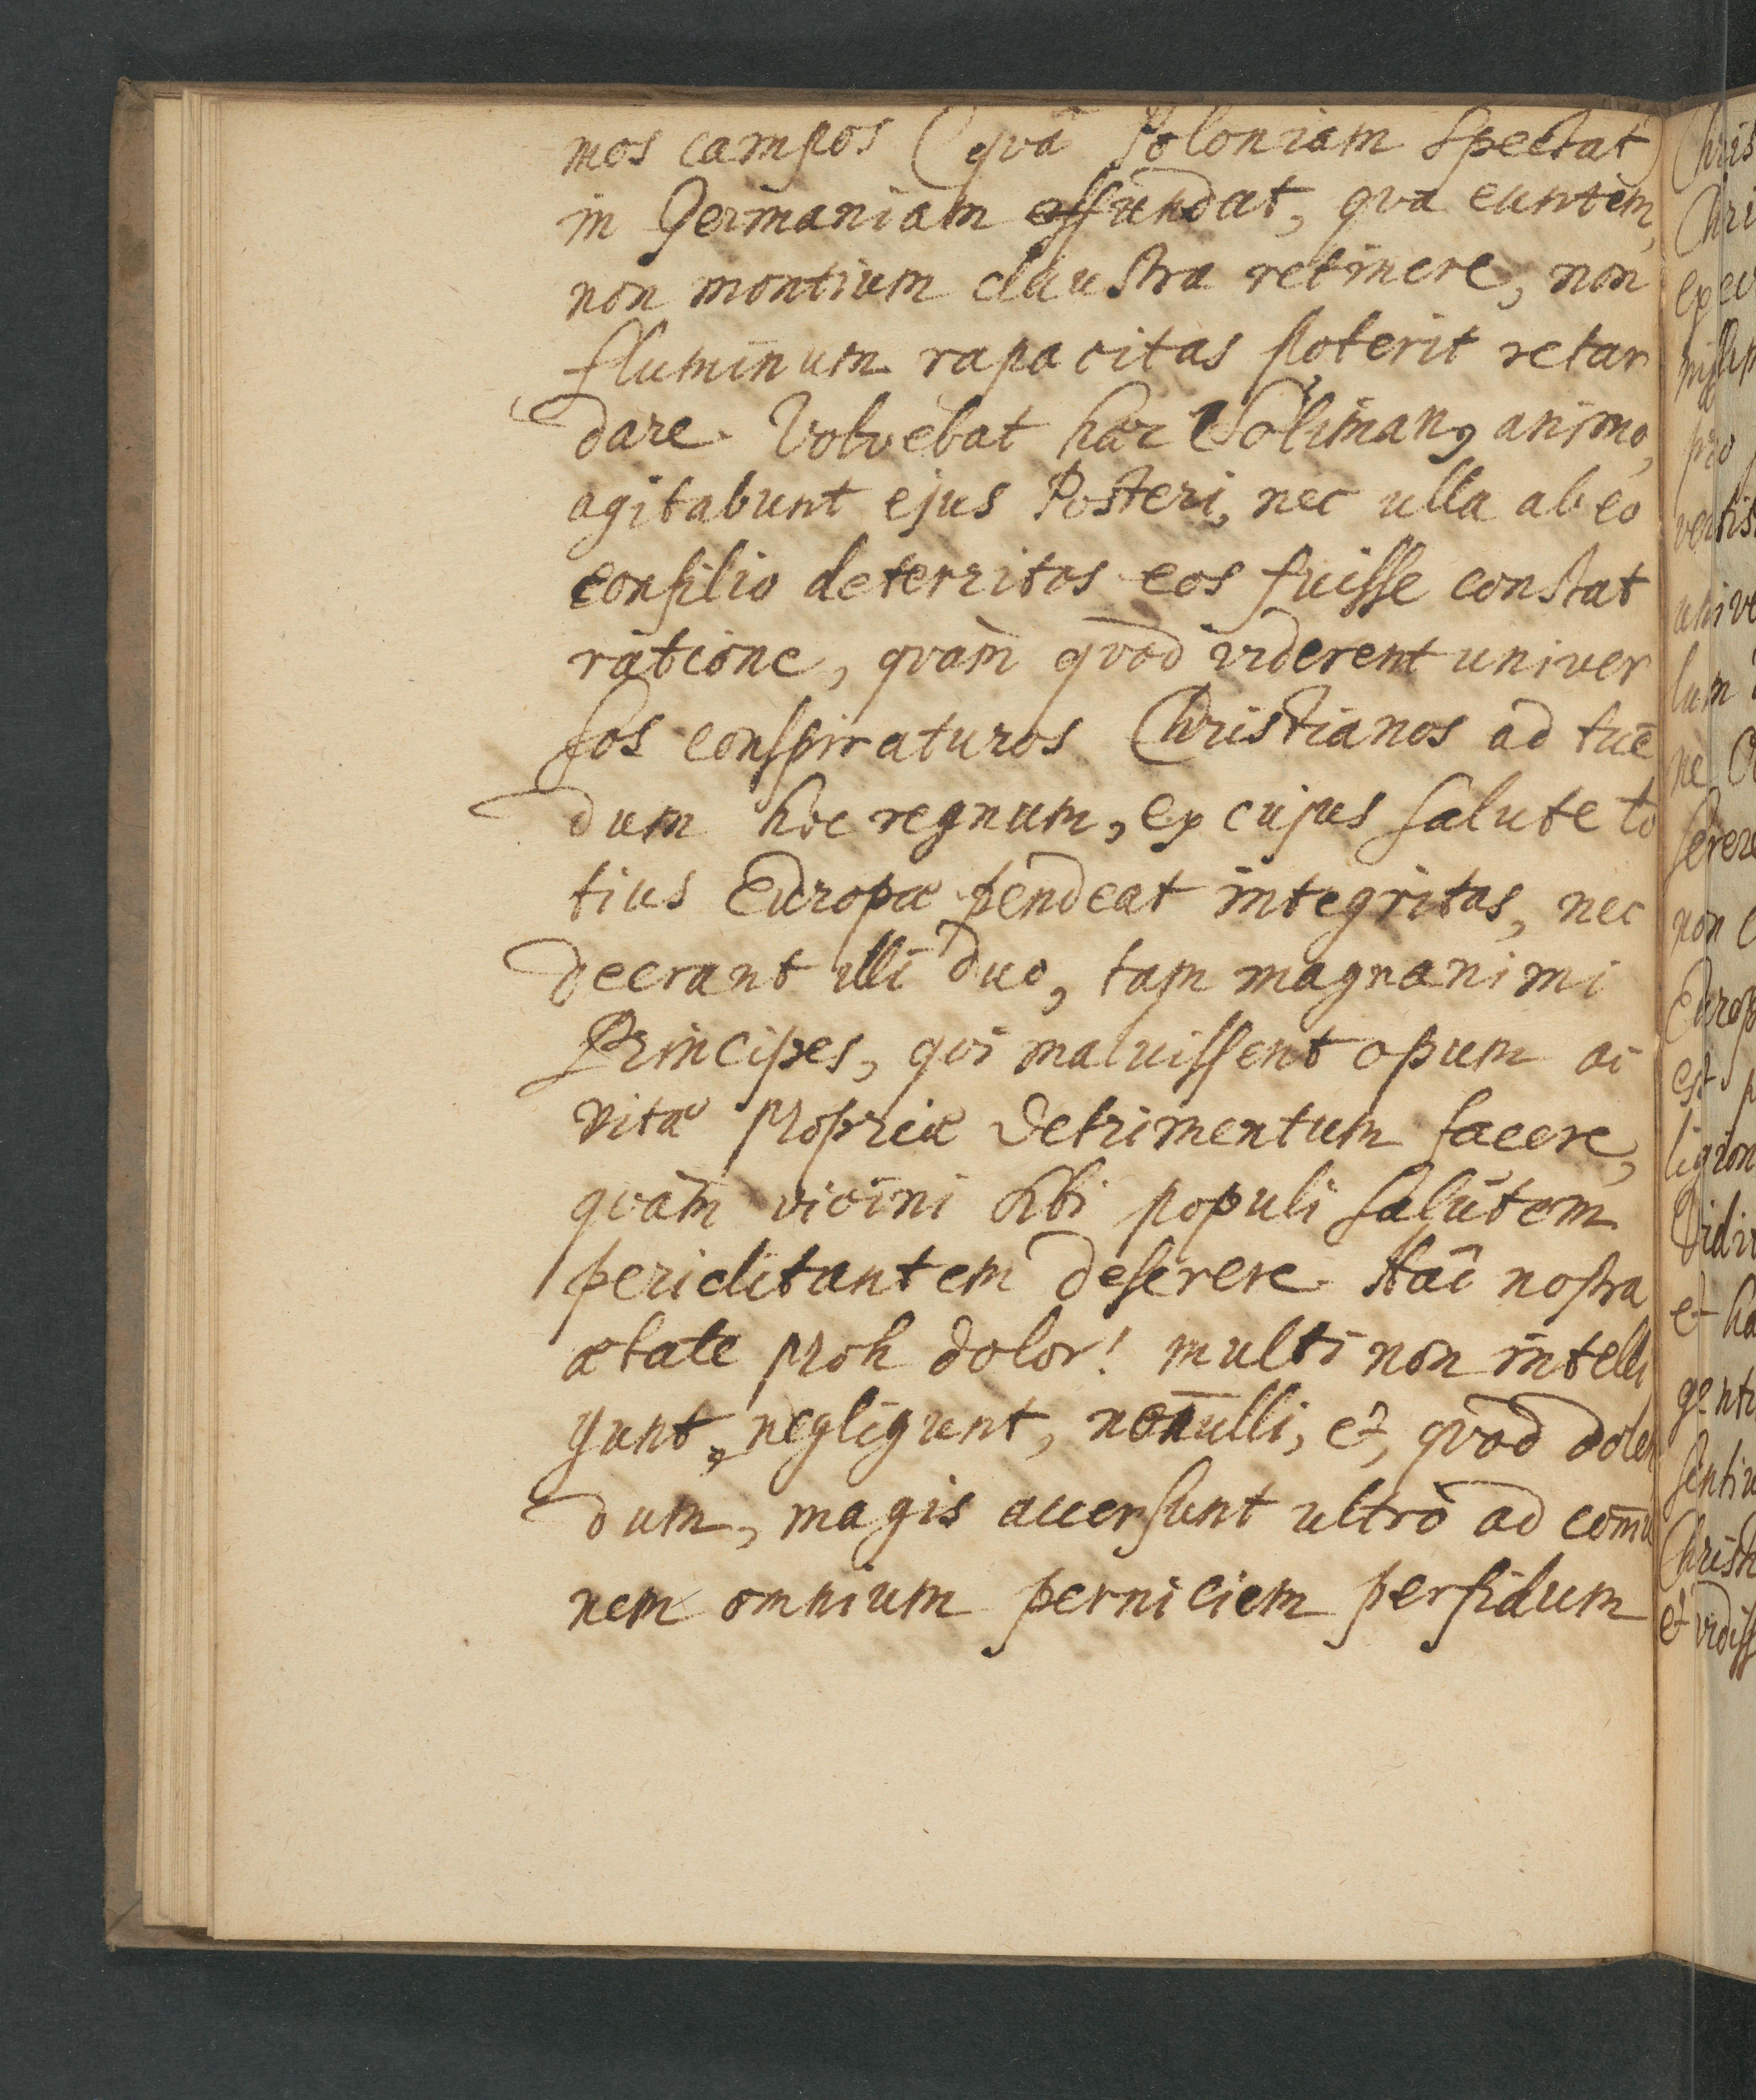 mos campos (qvà Poloniam spectat
in Germaniam effundat, qva euntem,
non montium claustra retinere, non
fluminum rapacitas poterit retar
dare. Volvebat hæc Solimanꝰ animo,
agitabunt ejus Posteri, nec ulla ab eo
consilio deterritos eos fuisse constat
ratione, qvàm qvod viderent univer
sos conspiraturos Christianos ad tuē
dum hoc regnum, ex cujus salute to
tius Europæ pendeat integritas, nec
deerant illi duo, tam magnanimi
Principes, qvi maluissent opum ac
vitæ propriæ detrimentum facere,
qvàm vicini sibi populi salutem
periclitantem deserere. Hac nostra
ætate proh dolor! multi non intelli
gunt, negligunt, nōnulli, et, qvod dolen
dum, magis accersunt ultrò ad com̄u
nem omnium perniciem perfidum
Chris
Chri
pro
vertis
unive
lum
ne
serere
non
Europ
est p
ligion
Vidi
et ha
genti
sentiu
Christi
et vidiss